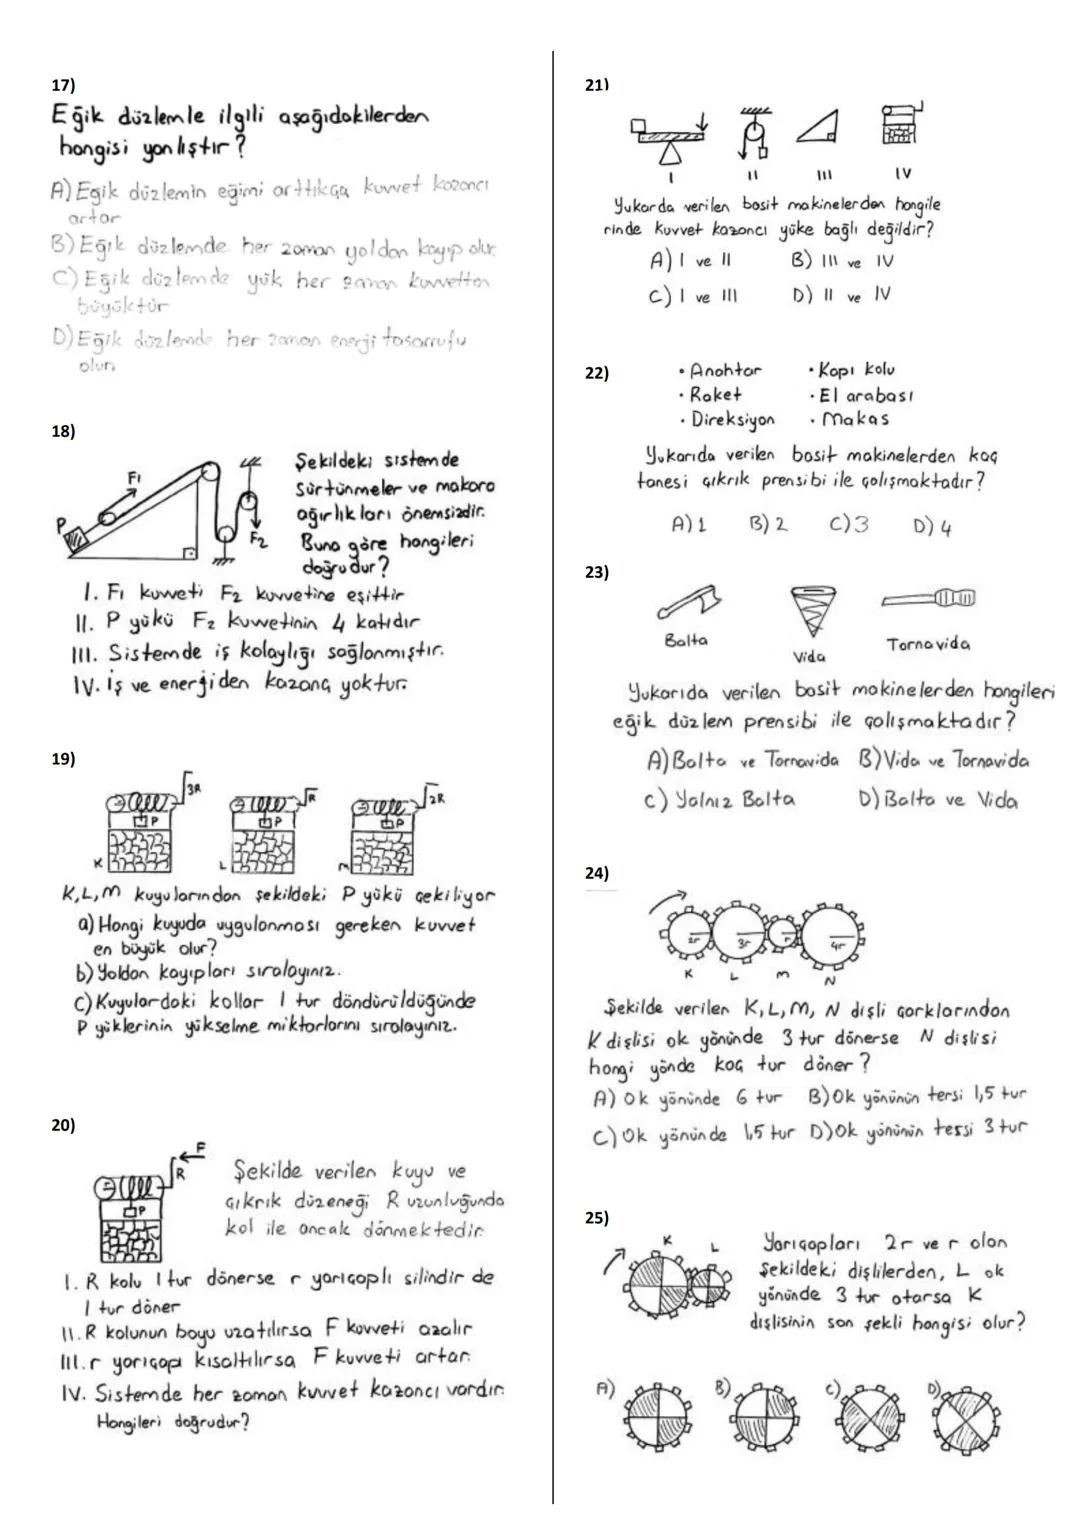 17)
Eğik düzlemle ilgili aşağıdakilerden
hangisi yanlıştır?
A) Eğik düzlemin eğimi arttıkça kuvvet kazancı
artar
B) Eğik düzlemde her zaman yoldan kayıp olur.
C) Eğik düzlemde yük her zaman kuvvetten
büyüktür
D) Eğik düzlemde her zaman enerji tasarrufu
olur.
18)
F1
P
F2
Şekildeki sistemde
sürtünmeler ve makara
ağırlıkları önemsizdir.
Buna göre hangileri
doğrudur?
I. F1 kuvveti F2 kuvvetine eşittir
II. P yükü F2 kuvvetinin 4 katıdır
III. Sistemde iş kolaylığı sağlanmıştır.
IV. İş ve enerjiden kazanç yoktur.
19)
3R R 2R
P P P
K L M
K,L,M kuyularından şekildeki P yükü çekiliyor
a) Hangi kuyuda uygulanması gereken kuvvet
en büyük olur?
b) Yoldan kayıpları sıralayınız.
c) Kuyulardaki kollar 1 tur döndürüldüğünde
P yüklerinin yükselme miktarlarını sıralayınız.
20)
F
R
P
Şekilde verilen kuyu ve
çıkrık düzeneği R uzunluğunda
kol ile ancak dönmektedir.
I. R kolu 1 tur dönerse r yarıçaplı silindir de
1 tur döner
II. R kolunun boyu uzatılırsa F kuvveti azalır
III. r yarıçapı kısaltılırsa F kuvveti artar.
IV. Sistemde her zaman kuvvet kazancı vardır.
Hangileri doğrudur?
21)
I II III IV
Yukarda verilen basit makinelerden hangile
rinde kuvvet kazancı yüke bağlı değildir?
A) I ve II B) III ve IV
C) I ve III D) II ve IV
22)
• Anahtar • Kapı kolu
• Raket • El arabası
• Direksiyon • Makas
Yukarıda verilen basit makinelerden kaç
tanesi çıkrık prensibi ile çalışmaktadır?
A) 1 B) 2 C) 3 D) 4
23)
Balta Vida Tornavida
Yukarıda verilen basit makinelerden hangileri
eğik düzlem prensibi ile çalışmaktadır?
A) Balta ve Tornavida B) Vida ve Tornavida
C) Yalnız Balta D) Balta ve Vida
24)
2r 3r r 4r
K L M N
Şekilde verilen K,L,M, N dişli çarklarından
K dişlisi ok yönünde 3 tur dönerse N dişlisi
hangi yönde kaç tur döner?
A) Ok yönünde 6 tur B) Ok yönünün tersi 1,5 tur
C) Ok yönünde 1,5 tur D) Ok yönünün tersi 3 tur
25)
K L
Yarıçapları 2r ve r olan
şekildeki dişlilerden, L ok
yönünde 3 tur atarsa K
dişlisinin son şekli hangisi olur?
A) B) C) D)